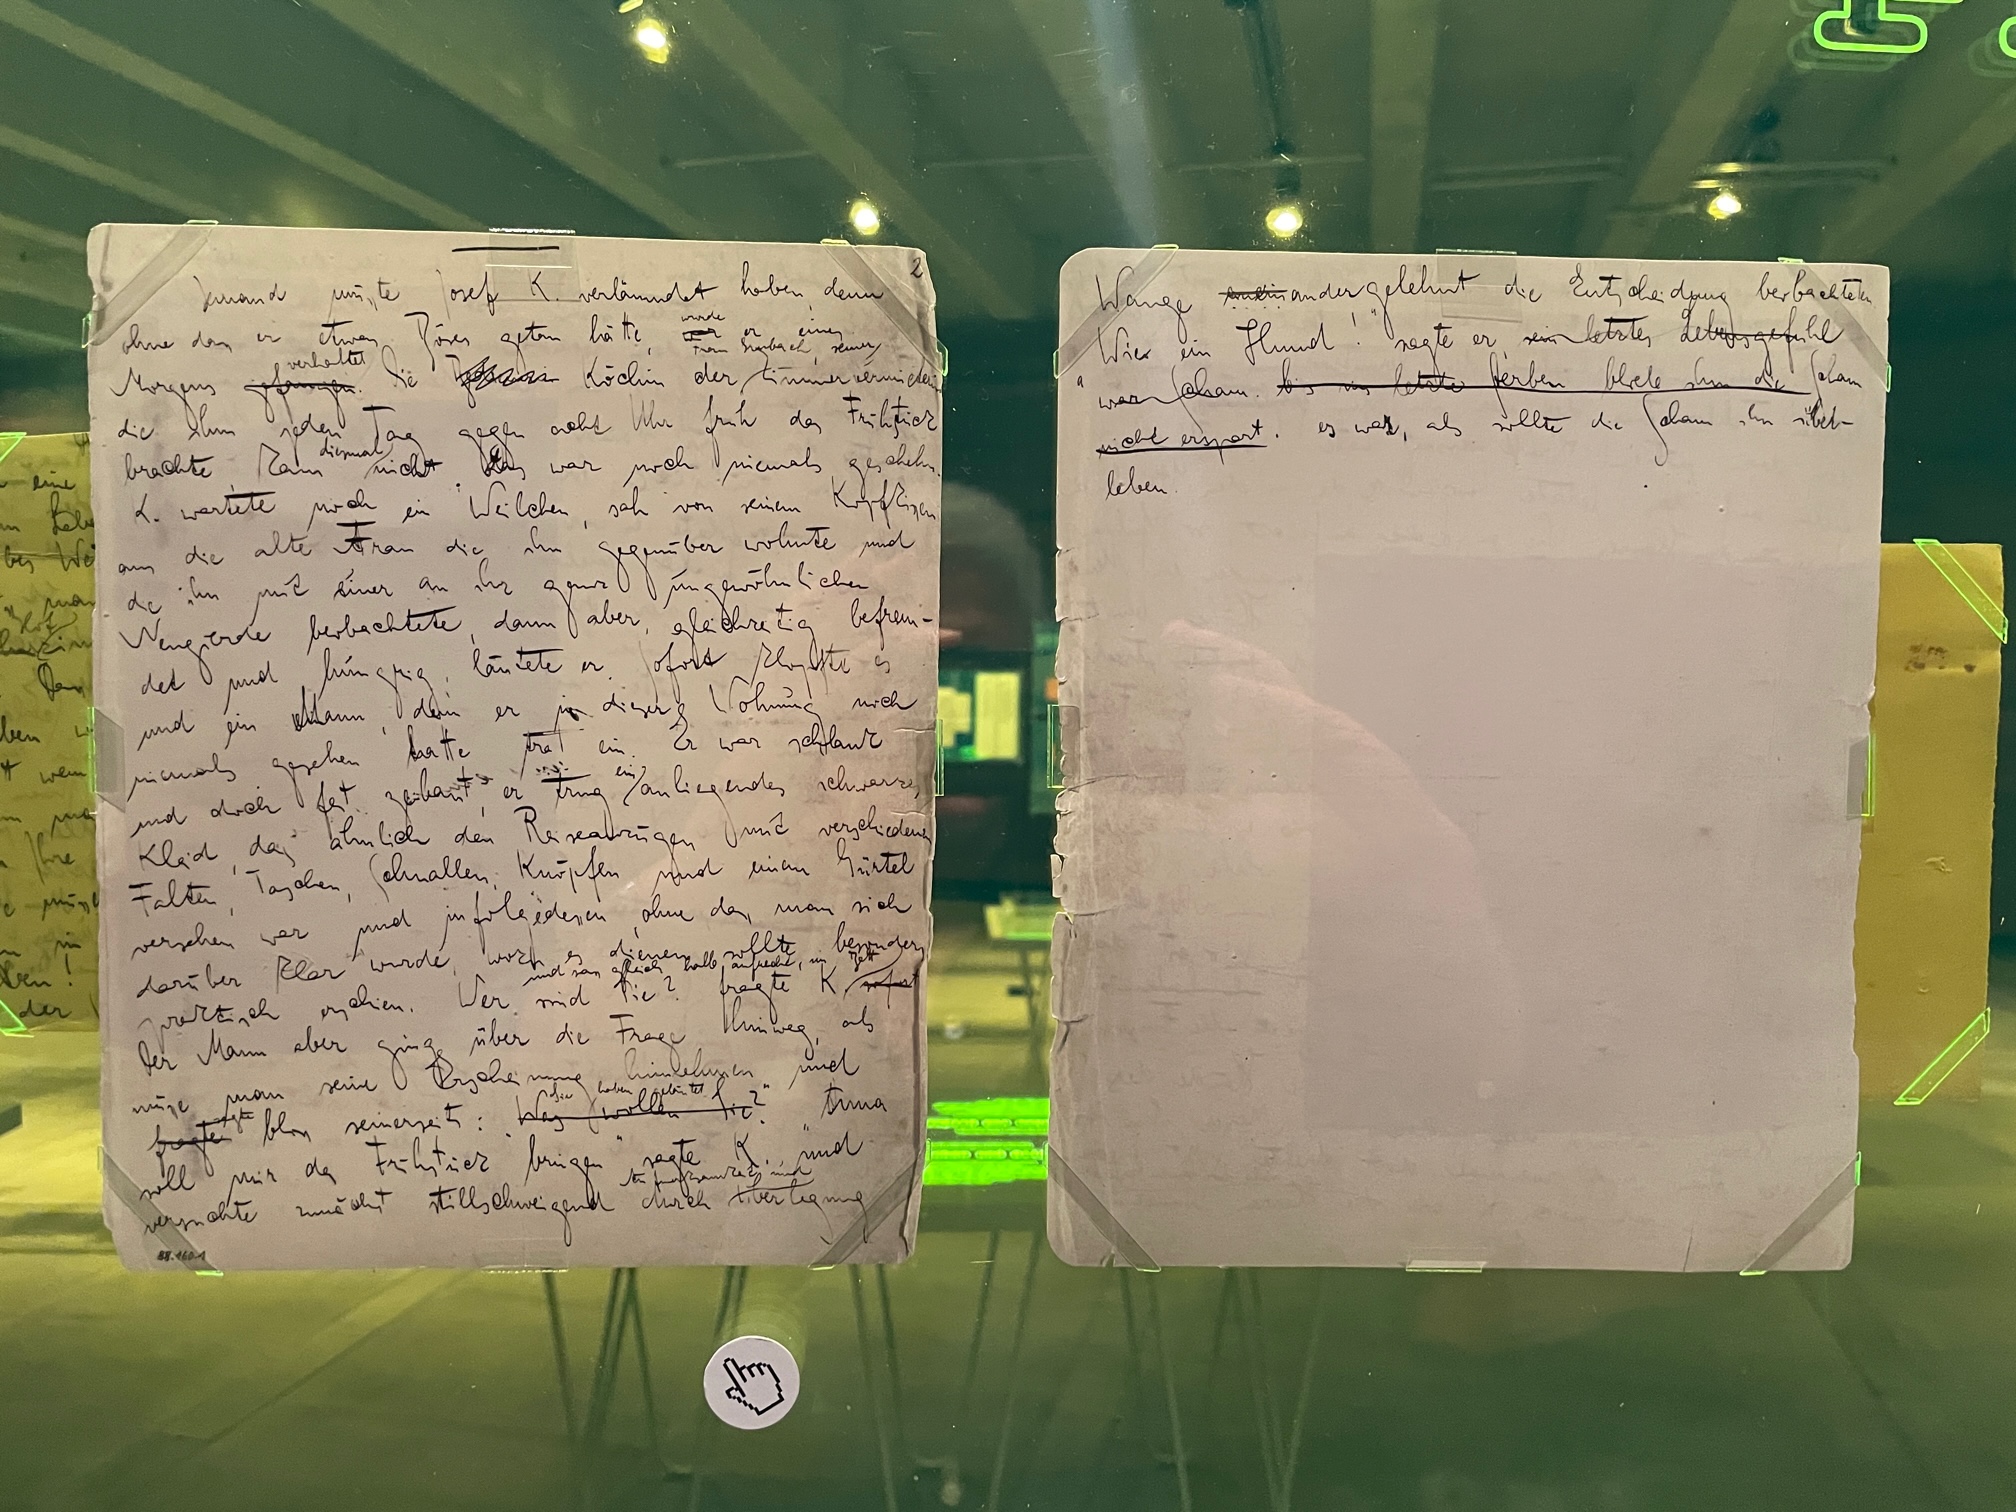 2
Jemand musste Josef K. verläumdet haben, denn
ohne dass er etwas Böses getan hätte, war wurde er eines
Morgens gefangen verhaftet. Die Köchin der Frau Grubach, seiner Zimmervermieterin
die ihm jeden Tag gegen acht Uhr früh das Frühstück
brachte kam diesmal nicht. Das war noch niemals geschehn.
K. wartete noch ein Weilchen, sah von seinem Kopfkissen
aus die alte Frau die ihm gegenüber wohnte und
die ihn mit einer an ihr ganz ungewöhnlichen
Neugierde beobachtete, dann aber, gleichzeitig befrem-
det und hungrig, läutete er. Sofort klopfte es
und ein Mann, den er in dieser Wohnung noch
niemals gesehen hatte trat ein. Er war schlank
und doch fest gebaut, er trug ein anliegendes schwarzes
Kleid, das ähnlich den Reiseanzügen mit verschiedenen
Falten, Taschen, Schnallen, Knöpfen und einem Gürtel
versehen war und infolgedessen, ohne dass man sich
darüber klar wurde, wozu es dienen sollte, besonders
praktisch erschien. Wer sind Sie? fragte K. sofort und sass gleich halb aufrecht im Bett
Der Mann aber ging über die Frage hinweg, als
müsse man seine Erscheinung hinnehmen und
fragte sagte bloss seinerseits: „Was wollen Sie Sie haben geläutet?" „Anna
soll mir das Frühstück bringen" sagte K. und
versuchte zunächst stillschweigend durch Aufmerksamkeit und Überlegung
88.160.1
Wange andergelehnt die Entscheidung beobachteten
„Wie ein Hund!" sagte er, sein letztes Lebensgefühl
war Scham. bis ins letzte Sterben blieb ihm die Scham
nicht erspart. es war, als sollte die Scham ihn über-
leben.